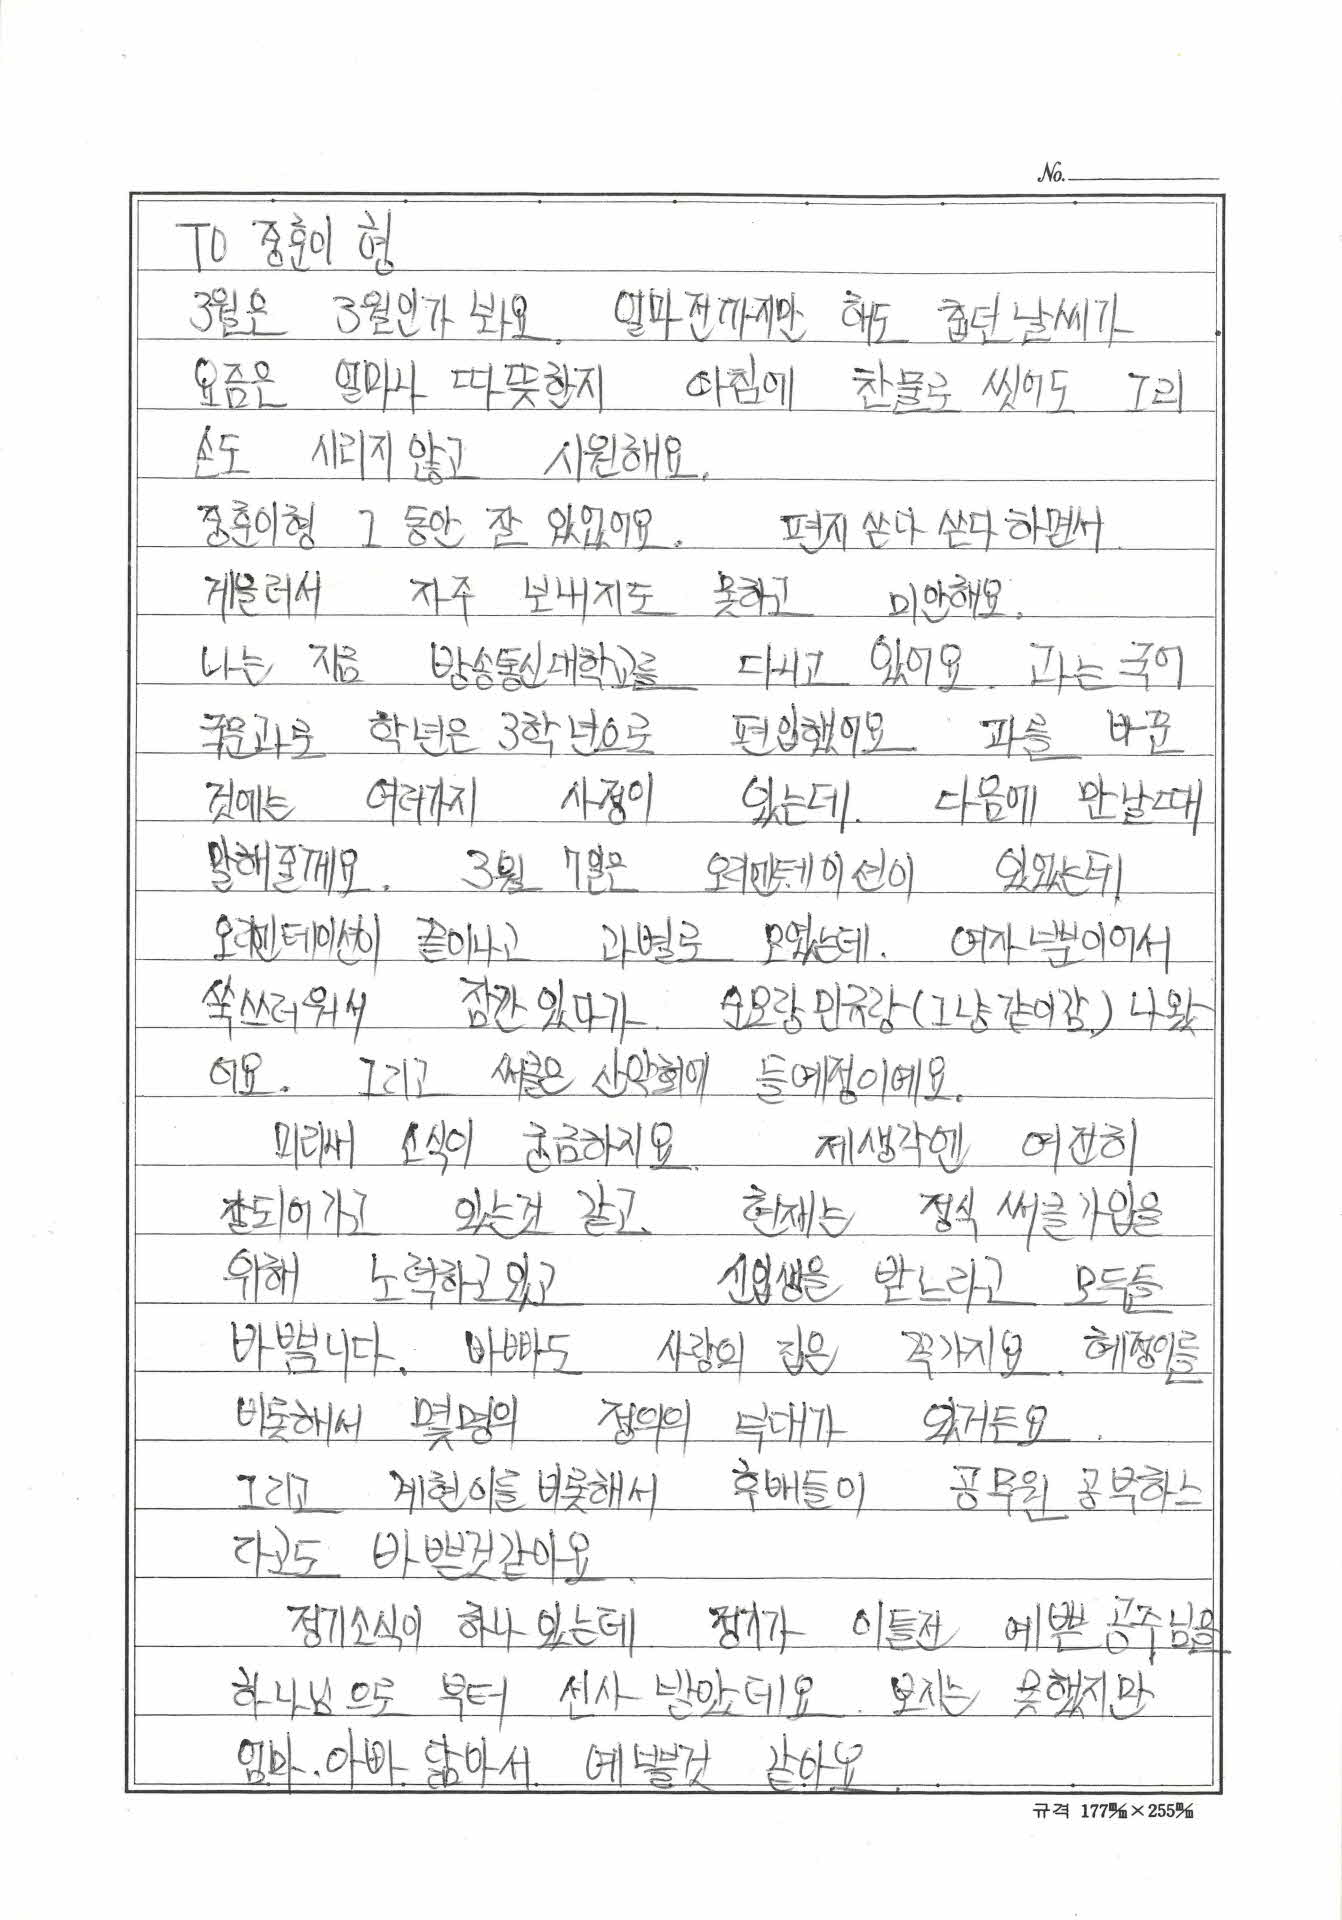 No.
TO 중훈이 형
3월은 3월인가 봐요. 얼마전까지만 해도 춥던 날씨가
요즘은 얼마나 따뜻한지 아침에 찬물로 씻어도 그리
손도 시리지 않고 시원해요.
중훈이형 그 동안 잘 있었어요. 편지 쓴다 쓴다 하면서
게을러서 자주 보내지도 못하고 미안해요.
나는 지금 방송통신대학교를 다니고 있어요. 과는 국어
국문과로 학년은 3학년으로 편입했어요. 과를 바꾼
것에는 여러가지 사정이 있는데. 다음에 만날때
말해줄께요. 3월 7일은 오리엔테이션이 있었는데
오리엔테이션이 끝이나고 과별로 모였는데. 여자분뿐이어서
쑥쓰러워서 잠깐있다가 순요랑 민규랑(그냥같이감.) 나왔
어요. 그리고 써클은 산악회에 들예정이예요.
미리내 소식이 궁금하지요. 제생각엔 여전히
잘되어가고 있는것 같고. 현재는 정식 써클가입을
위해 노력하고있고 신입생을 받느라고 모두들
바쁩니다. 바빠도 사랑의 집은 꼭가지요. 혜정이를
비롯해서 몇명의 정의의 부대가 있거든요.
그리고 계현이를 비롯해서 후배들이 공무원 공부하느
라고도 바쁜것같아요.
정기소식이 하나 있는데 정기가 이틀전 예쁜 공주님을
하나님으로 부터 선사 받았데요. 보지는 못했지만
엄마.아빠 닮아서 예쁠것 같아요.
규격 177㎜×255㎜